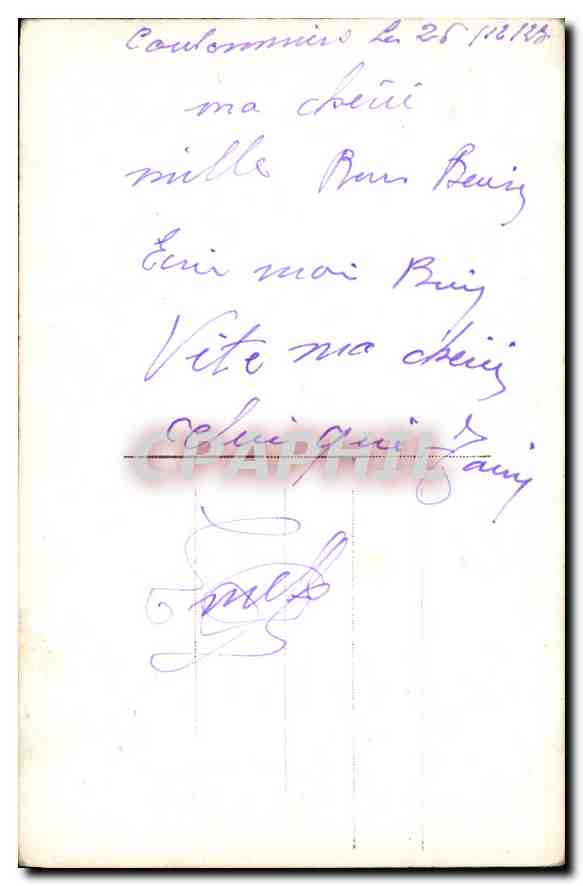 Coulommiers Le 26/12/23
ma chérie
mille Bons Baisers
Ecris moi Bien
Vite ma chérie
celui qui t'aime
CPAPHIL